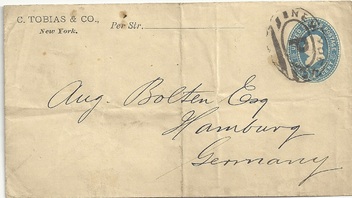 C. TOBIAS & CO.,
New York.
Per Str.
Aug. Bolten Esq
Hamburg
Germany